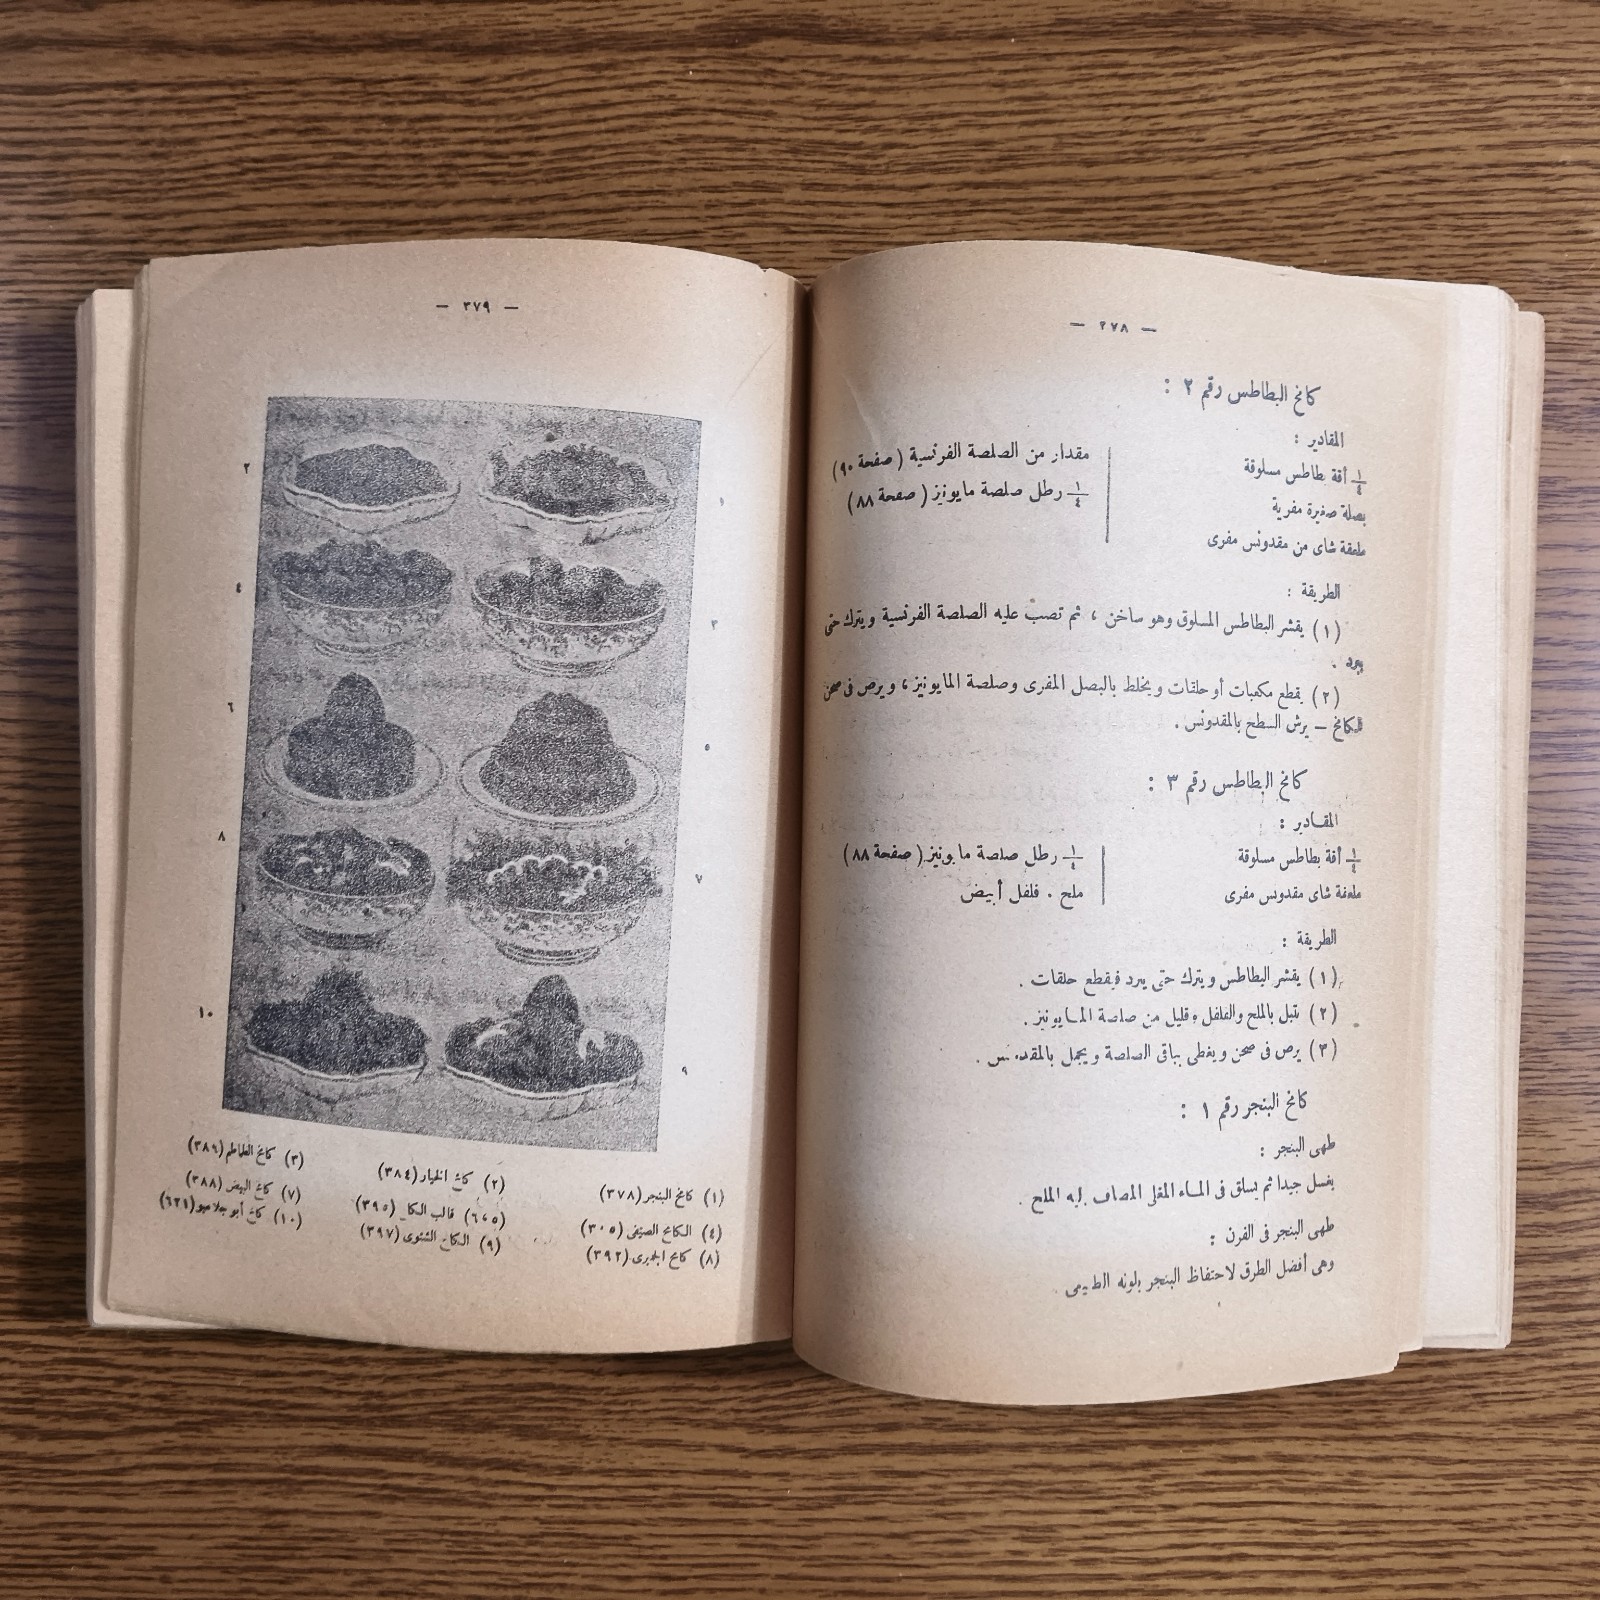 — ٣٧٨ —
كامخ البطاطس رقم ٢ :
المقادير :
١/٤ أقة بطاطس مسلوقة
بصلة صغيرة مفرية
ملعقة شاى من مقدونس مفرى
مقدار من الصلصة الفرنسية ( صفحة ٩٠)
١/٤ رطل صلصة مايونيز ( صفحة ٨٨)
الطريقة :
(١) يقشر البطاطس المسلوق وهو ساخن ، ثم تصب عليه الصلصة الفرنسية ويترك حتى
يبرد .
(٢) يقطع مكعبات أو حلقات ويخلط بالبصل المفرى وصلصة المايونيز ، ويرص فى صحن
الكامخ — يرش السطح بالمقدونس .
كامخ البطاطس رقم ٣ :
المقادير :
١/٤ أقة بطاطس مسلوقة
ملعقة شاى مقدونس مفرى
١/٤ رطل صلصة مايونيز ( صفحة ٨٨)
ملح . فلفل أبيض
الطريقة :
(١) يقشر البطاطس ويترك حتى يبرد فيقطع حلقات .
(٢) يتبل بالملح والفلفل وقليل من صلصة المايونيز .
(٣) يرص فى صحن ويغطى بباقى الصلصة ويجمل بالمقدونس .
كامخ البنجر رقم ١ :
طهى البنجر :
يغسل جيدا ثم يسلق فى الماء المغلى المضاف إليه الملح .
طهى البنجر فى الفرن :
وهى أفضل الطرق لاحتفاظ البنجر بلونه الطبيعى .
— ٣٧٩ —
١
٢
٣
٤
٥
٦
٧
٨
٩
١٠
(١) كامخ البنجر (٣٧٨) (٢) كامخ الخيار (٣٨٤) (٣) كامخ الطماطم (٣٨٩)
(٤) الكامخ الصيفى (٣٠٥) (٥،٦) قالب الكامخ (٣٩٥) (٧) كامخ البيض (٣٨٨)
(٨) كامخ الجمبرى (٣٩٢) (٩) الكامخ الشتوى (٣٩٧) (١٠) كامخ أبو جلامبو